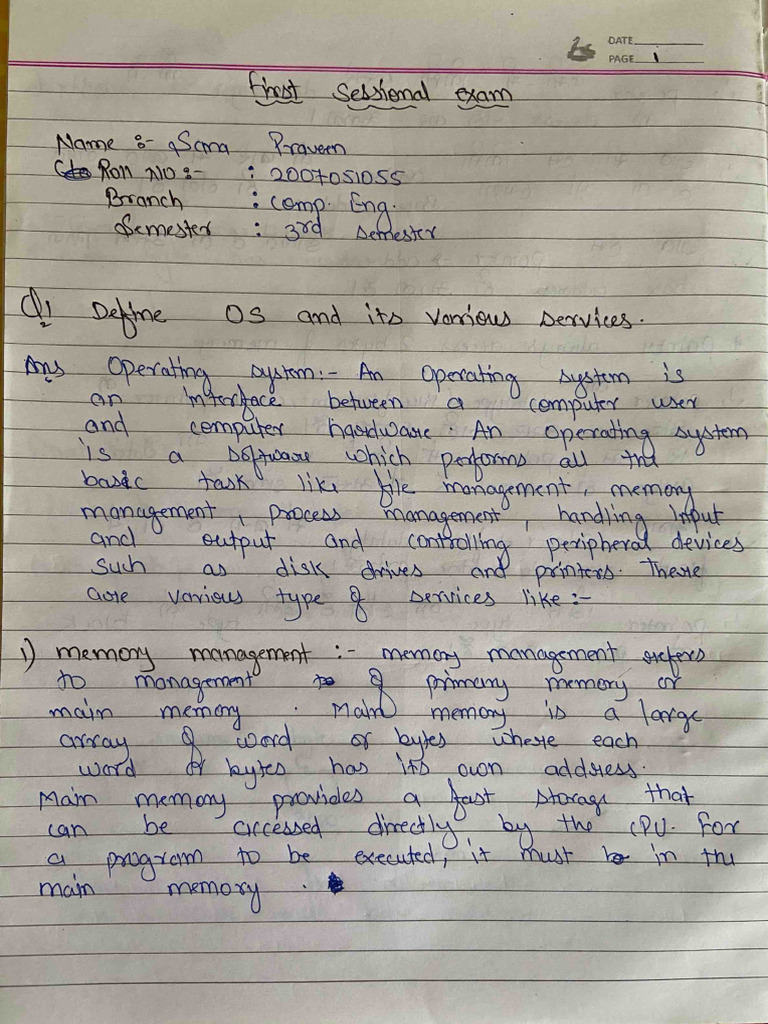 DATE
PAGE 1
First Sessional exam
Name :- Sana Praveen
Roll No :- : 2007051055
Branch : Comp. Eng.
Semester : 3rd Semester
Q1 Define OS and its various services.
Ans Operating system:- An Operating system is
an interface between a computer user
and computer hardware. An operating system
is a software which performs all the
basic task like file management, memory
management, process management, handling Input
and output and controlling peripheral devices
such as disk drives and printers. There
are various type of services like :-
1) memory management :- memory management refers
to management of primary memory or
main memory. Main memory is a large
array of word or bytes where each
word or bytes has its own address.
Main memory provides a fast storage that
can be accessed directly by the CPU. For
a program to be executed, it must be in the
main memory.